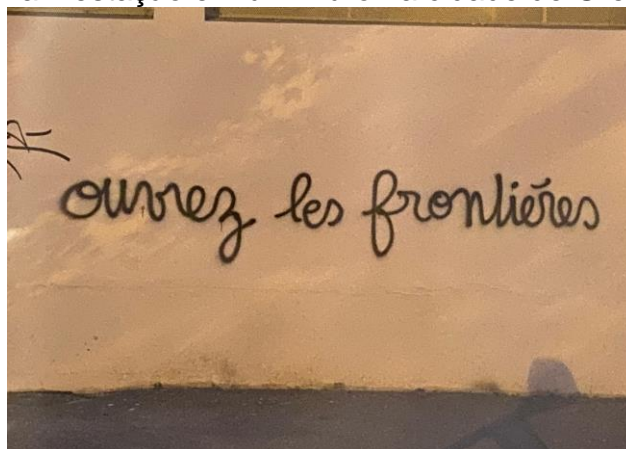 ouvrez les frontières